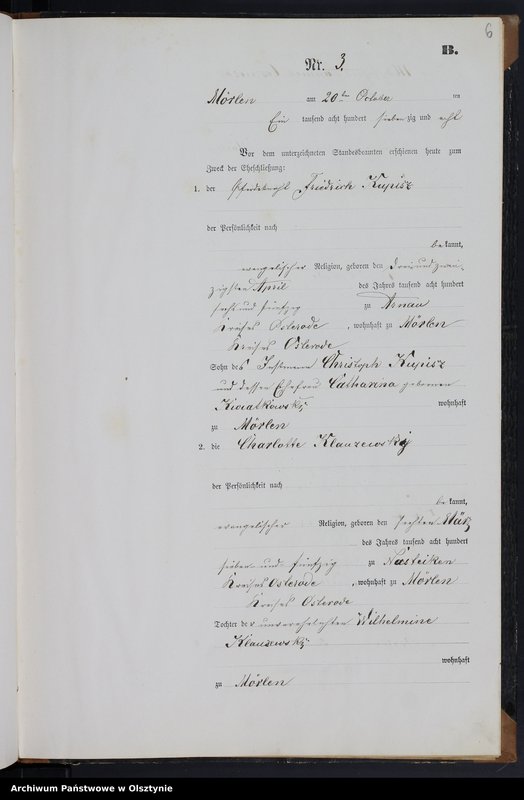 6
B.
Nr. 3.
Mörlen am 20ten October ten
Ein tausend acht hundert siebenzig und acht
Vor dem unterzeichneten Standesbeamten erschienen heute zum
Zweck der Eheschließung:
1. der Pferdeknecht Friedrich Kupisz
der Persönlichkeit nach
bekannt,
evangelischer Religion, geboren den dreiundzwan-
zigsten April des Jahres tausend acht hundert
sechs und fünfzig zu Arnau
Kreises Osterode, wohnhaft zu Mörlen
Kreises Osterode
Sohn des Instmann Christoph Kupisz
und dessen Ehefrau Catharina geborenen
Kwiatkowsky wohnhaft
zu Mörlen
2. die Charlotte Klauzewsky
der Persönlichkeit nach
bekannt,
evangelischer Religion, geboren den sechsten März
des Jahres tausend acht hundert
sieben und fünfzig zu Nasteiken
Kreises Osterode, wohnhaft zu Mörlen
Kreises Osterode
Tochter der unverehelichten Wilhelmine
Klauzewsky
wohnhaft
zu Mörlen
Archiwum Państwowe w Olsztynie